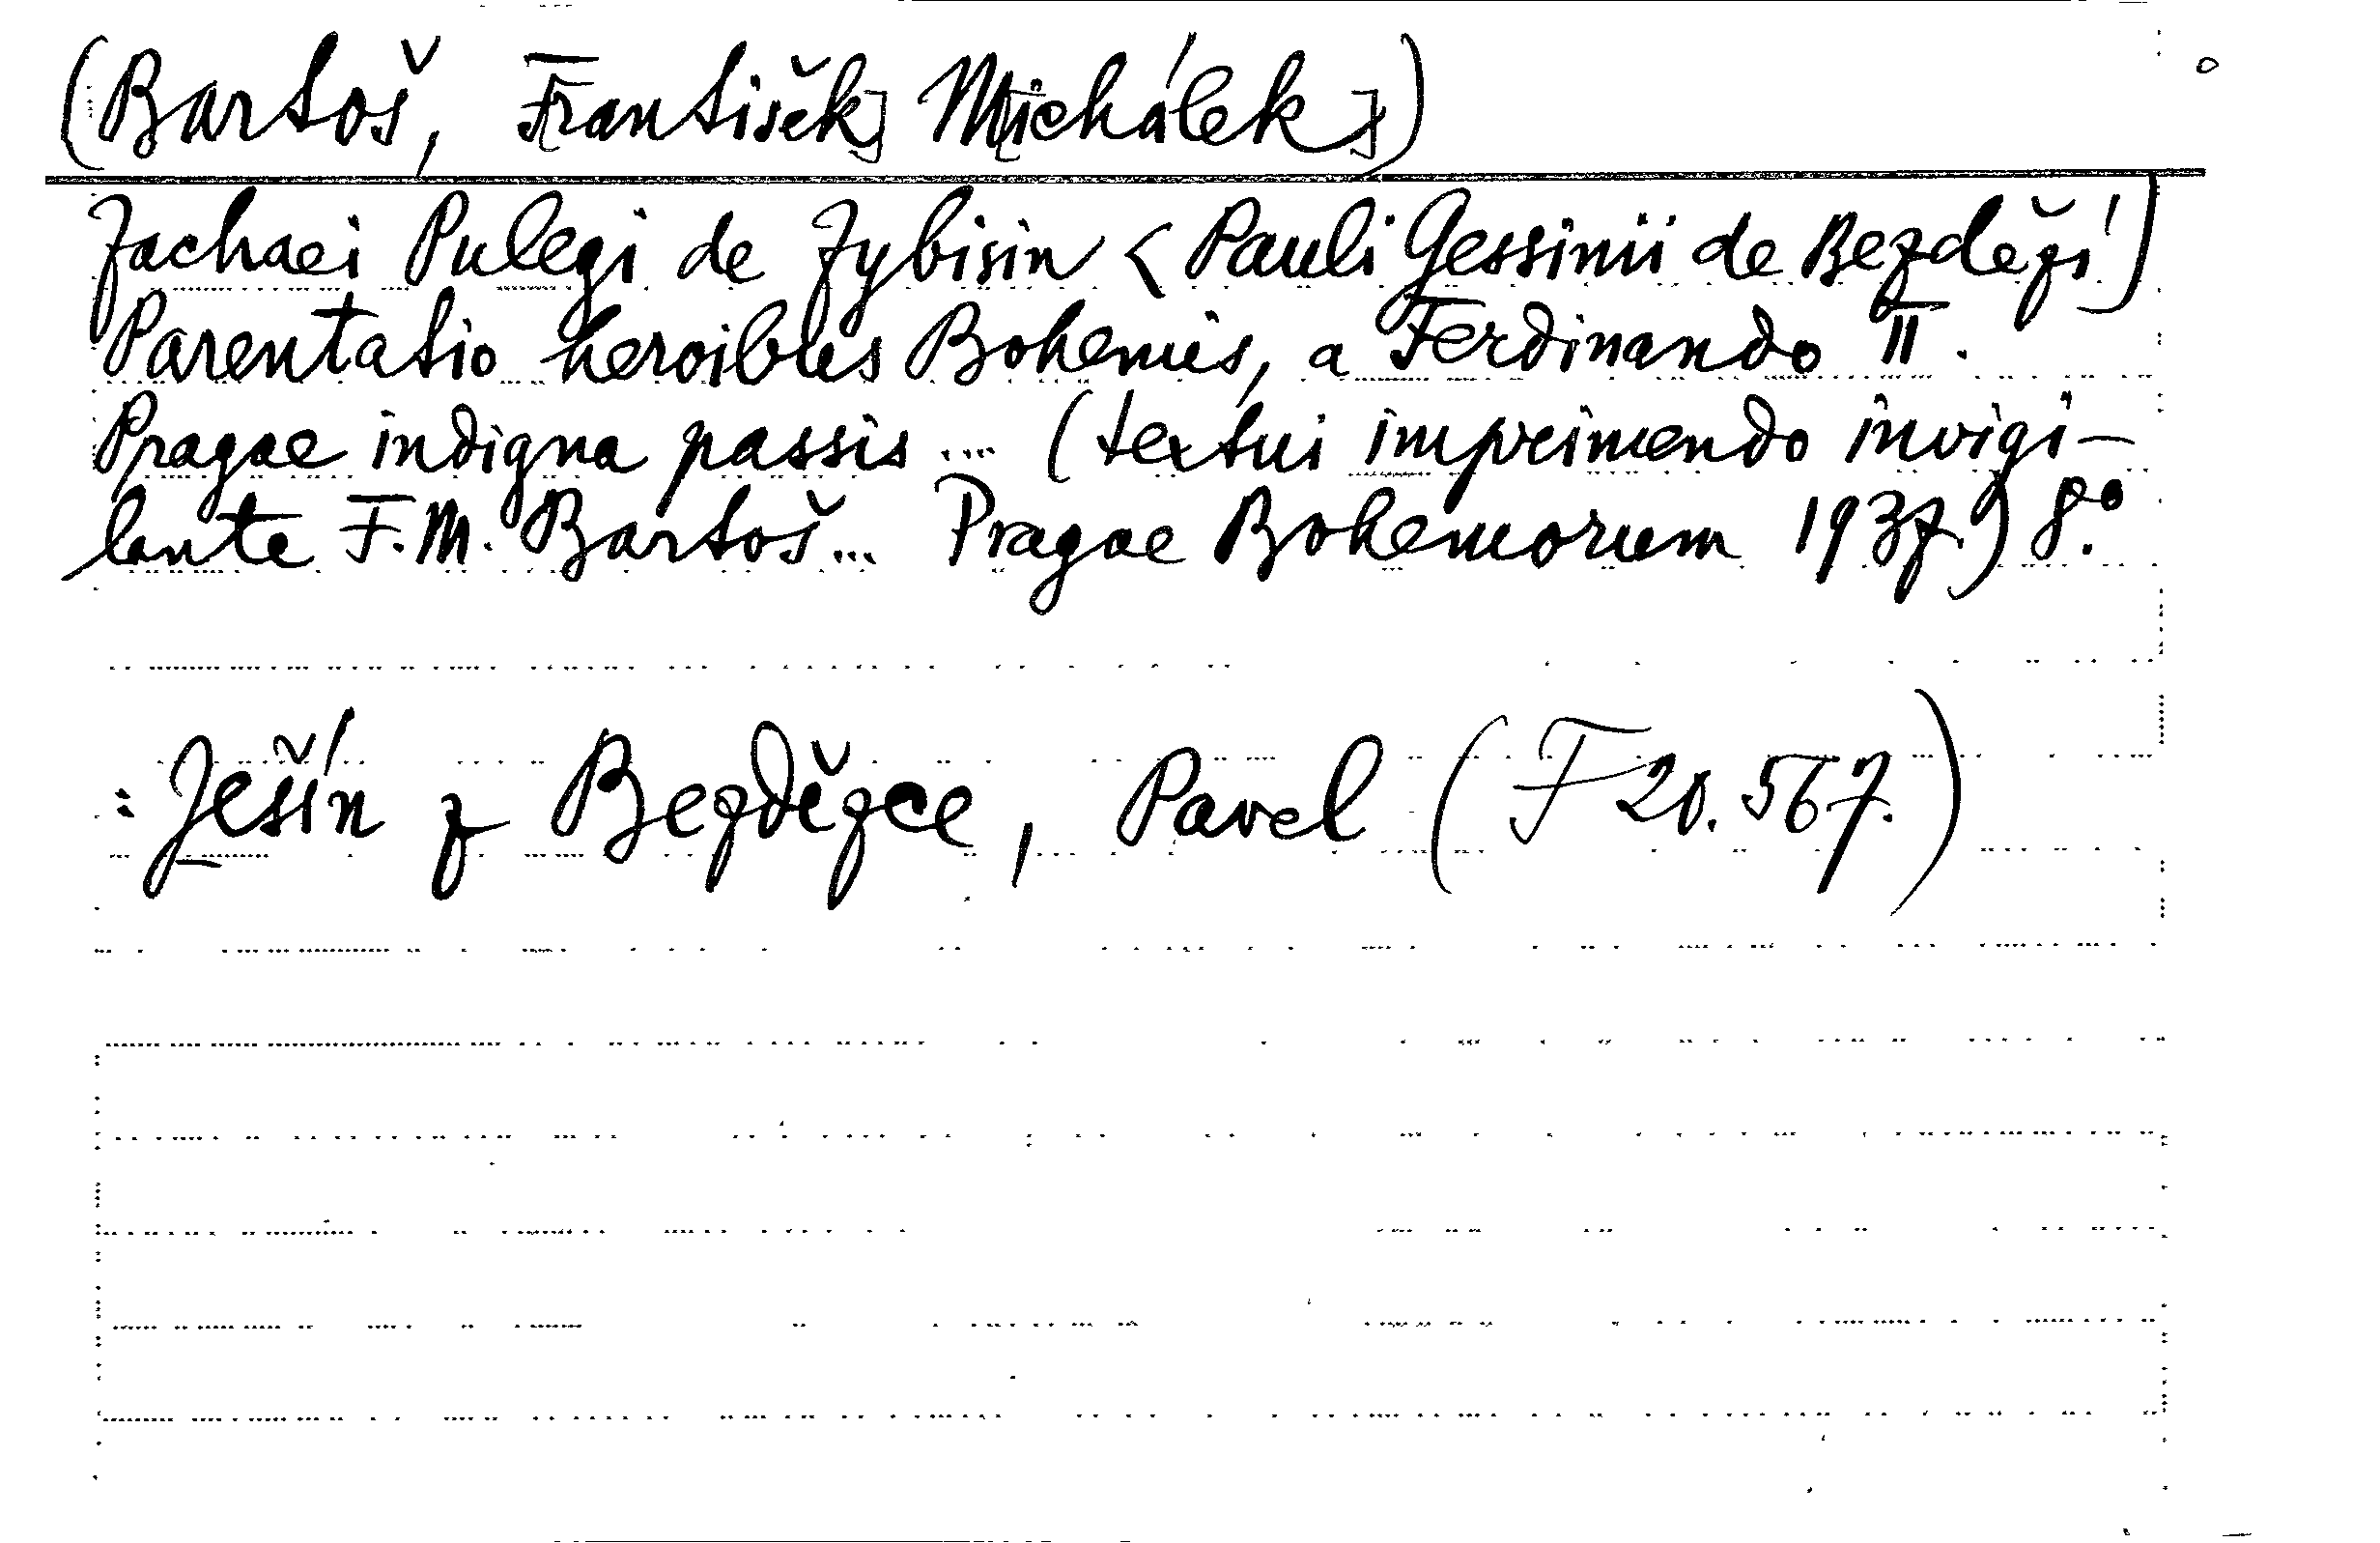 (Bartoš, F[rantišek] M[ichálek])
Zachaei Pulegi de Zybisin <Pauli Gessinii de Bezděží]
Parentatio heroibus Bohemis, a Ferdinando II.
Pragae indigna passis ... (textui imprimendo invigi-
lante F. M. Bartoš... Pragae Bohemorum 1937.) 8°.
: Ješín z Bezdězce, Pavel (F 20.567.)